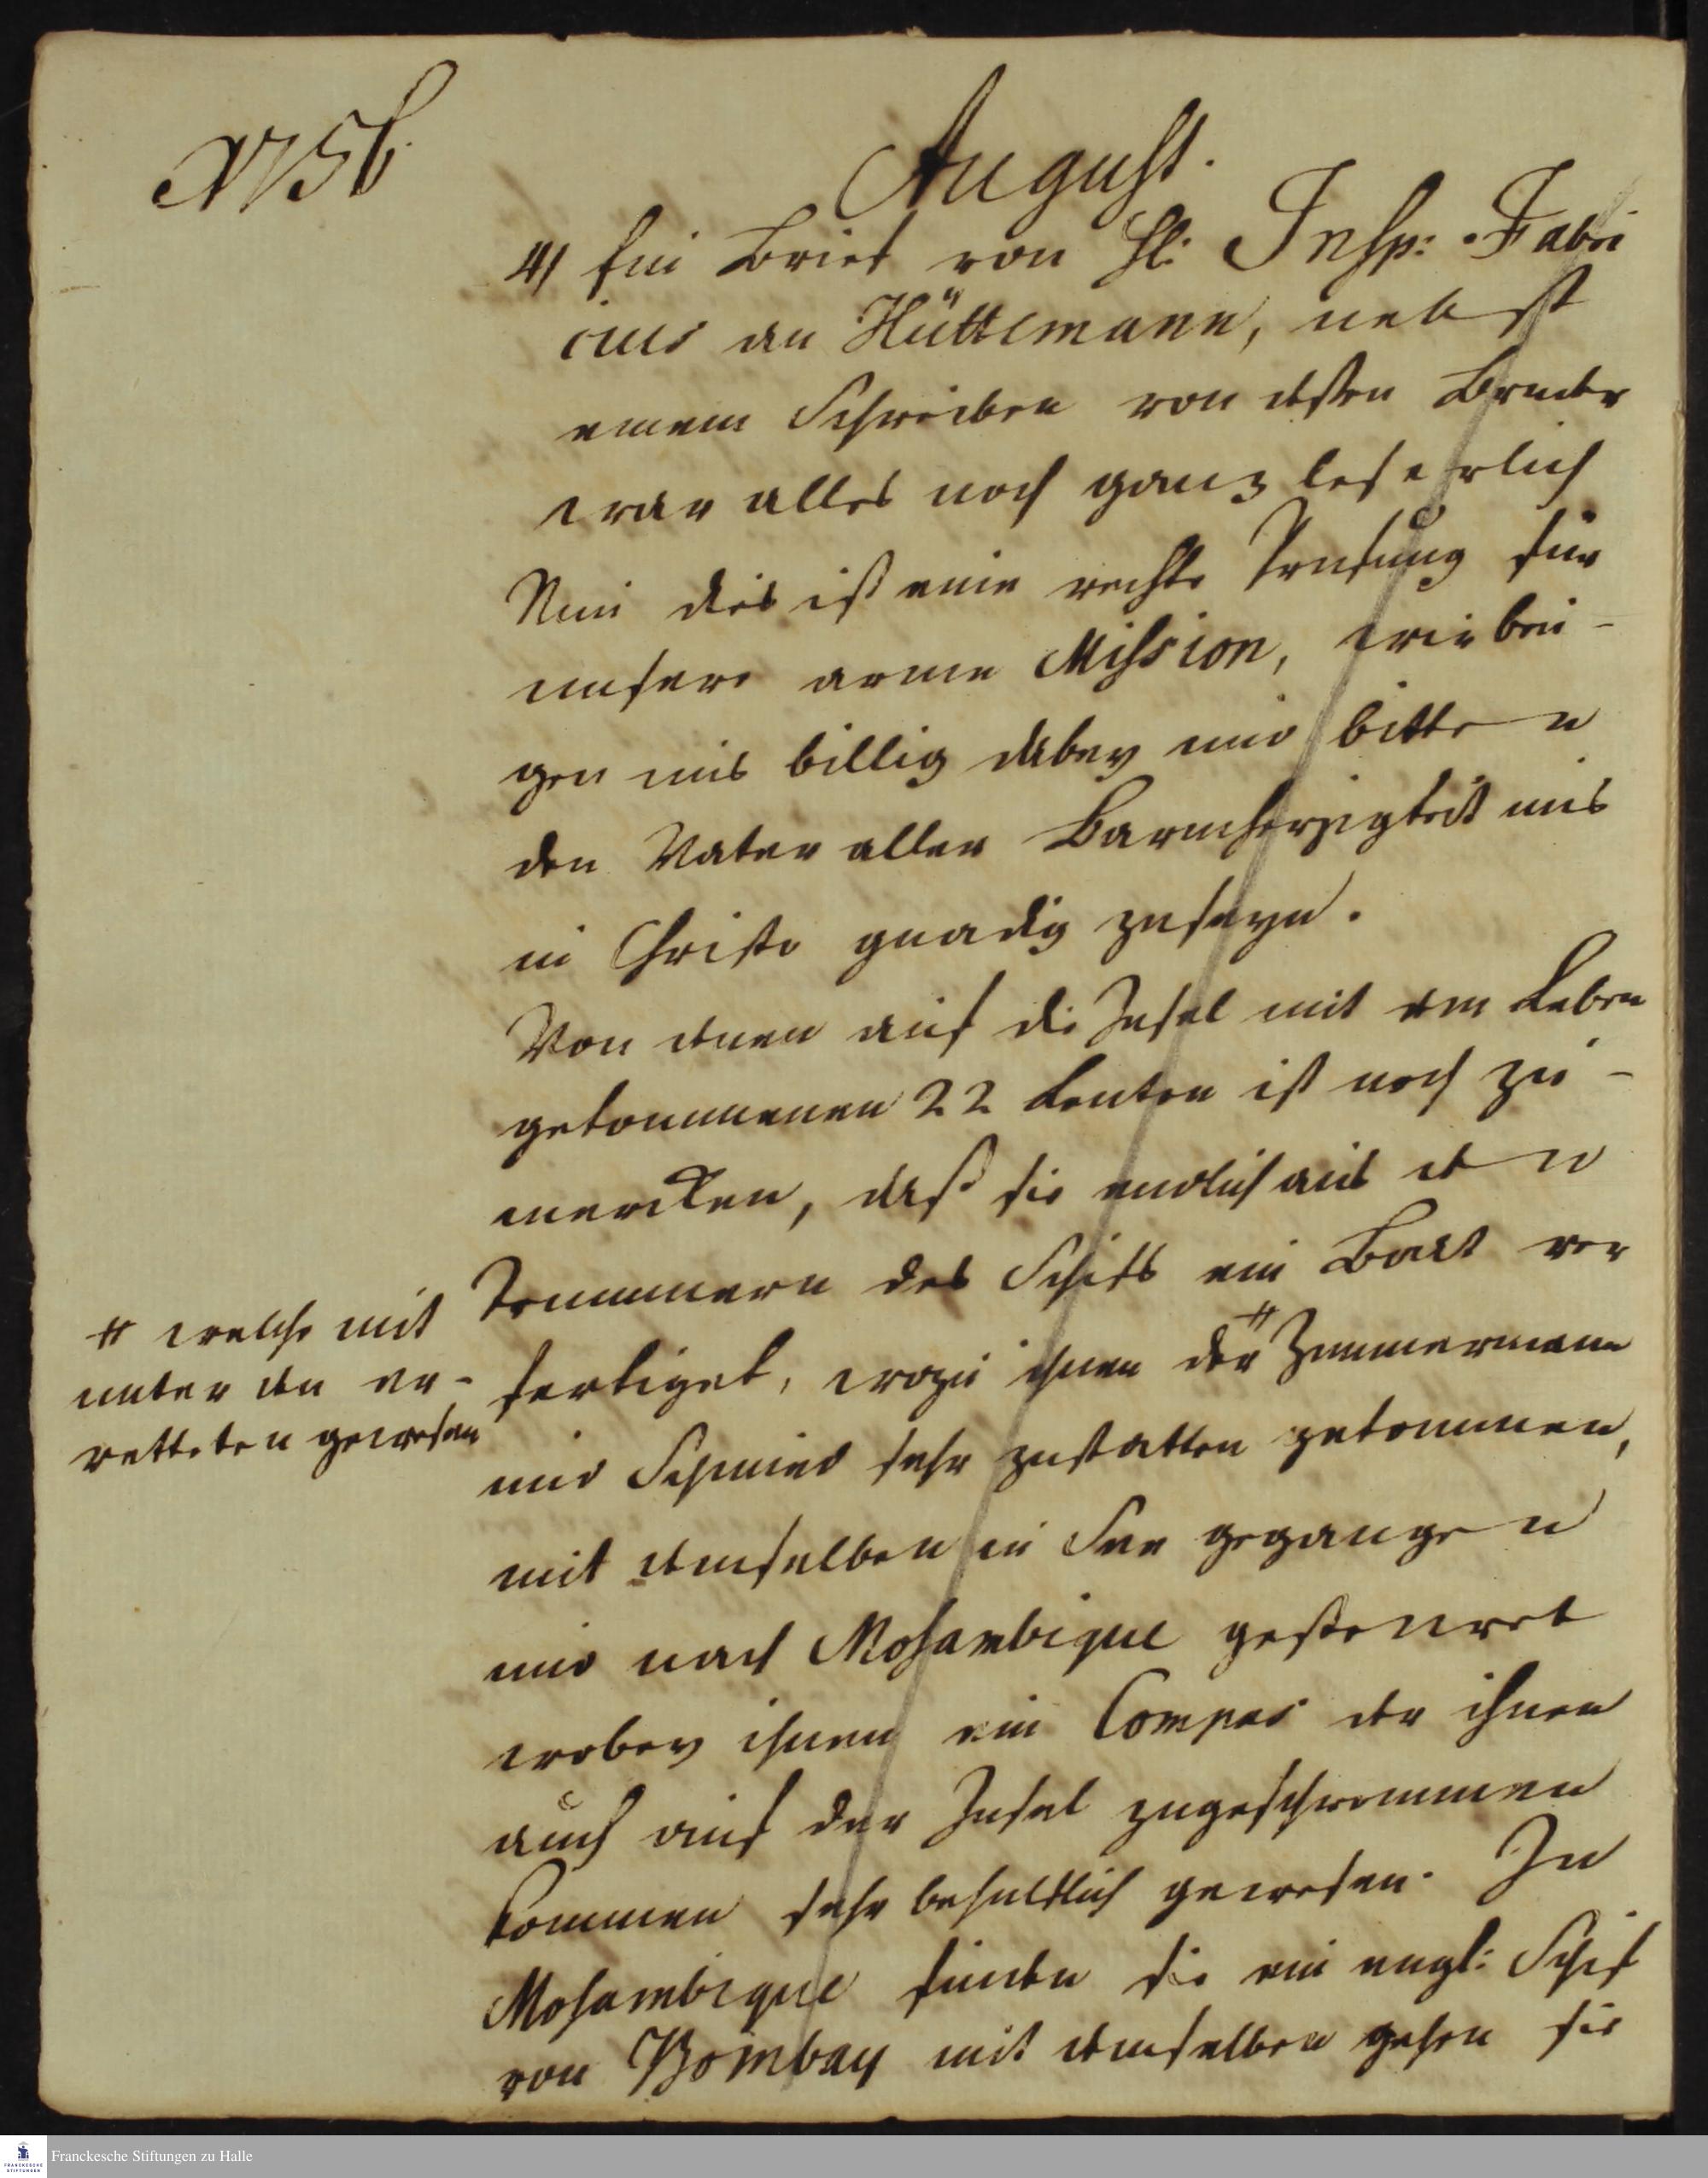 1756
August.
4) Ein Brief von H: Insp: Fabri
cius an Hüttemann, nebst
einem Schreiben von deßen Bruder
war alles noch ganz leserlich
Nun dies ist eine rechte Prufung für
unsere arme Mission, wir beu-
gen uns billig dabey und bitten
den Vater aller Barmherzigkeit uns
in Christo gnadig zuseyn.
Von denen auf die Insel mit dem Leben
gekommenen 22 Leuten ist noch zu-
mercken, daß sie endlich aus den
Trummern des Schifs ein Boot ver
# welche mit
unter den er-
retteten gewesen
fertiget, wozu ihnen der # Zimmermann
und Schmied sehr zustatten gekommen,
mit demselben in See gegangen
und nach Mosambique gesteuret
wobey ihnen ein Compas der ihnen
auch auf der Insel zugeschwommen
kommen sehr behulflich gewesen. In
Mosambique finden sie ein engl: Schif
von Bombay mit demselben gehen sie
Franckesche Stiftungen zu Halle
FRANCKESCHE
STIFTUNGEN